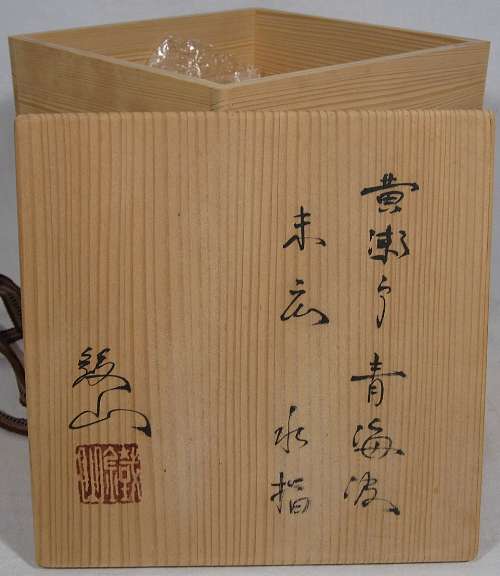 黄瀬戸 青海波
末広 水指
鉄山